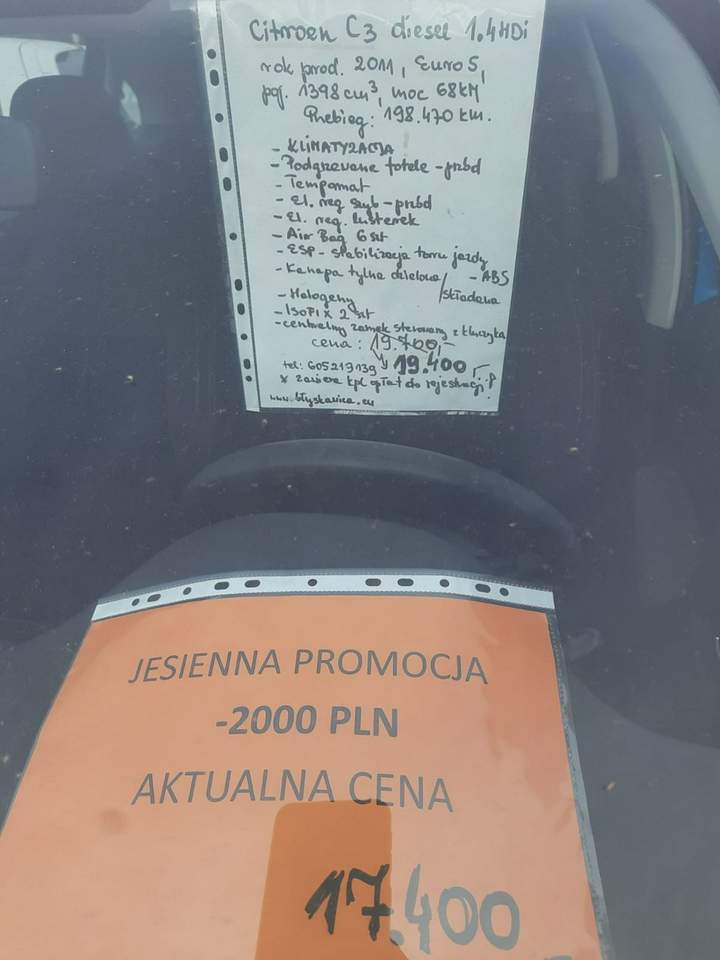 Citroen C3 diesel 1.4HDi
rok prod. 2011, Euro5,
poj. 1398cm³, moc 68kM
Przebieg: 198.470 km.
- KLIMATYZACJA
- Podgrzewane fotele - przód
- Tempomat
- El. reg szyb - przód
- El. reg. lusterek
- Air Bag 6szt
- ESP - stabilizacja toru jazdy
- Kanapa tylna dzielona/składana
- ABS
- Halogeny
- ISOFIX 2 szt
- centralny zamek sterowany z kluczyka
cena: 19.700,-
tel: 605219139 19.400,-
* zawiera kpl opłat do rejestracji!
www.błyskawica.eu
JESIENNA PROMOCJA
-2000 PLN
AKTUALNA CENA
17.400